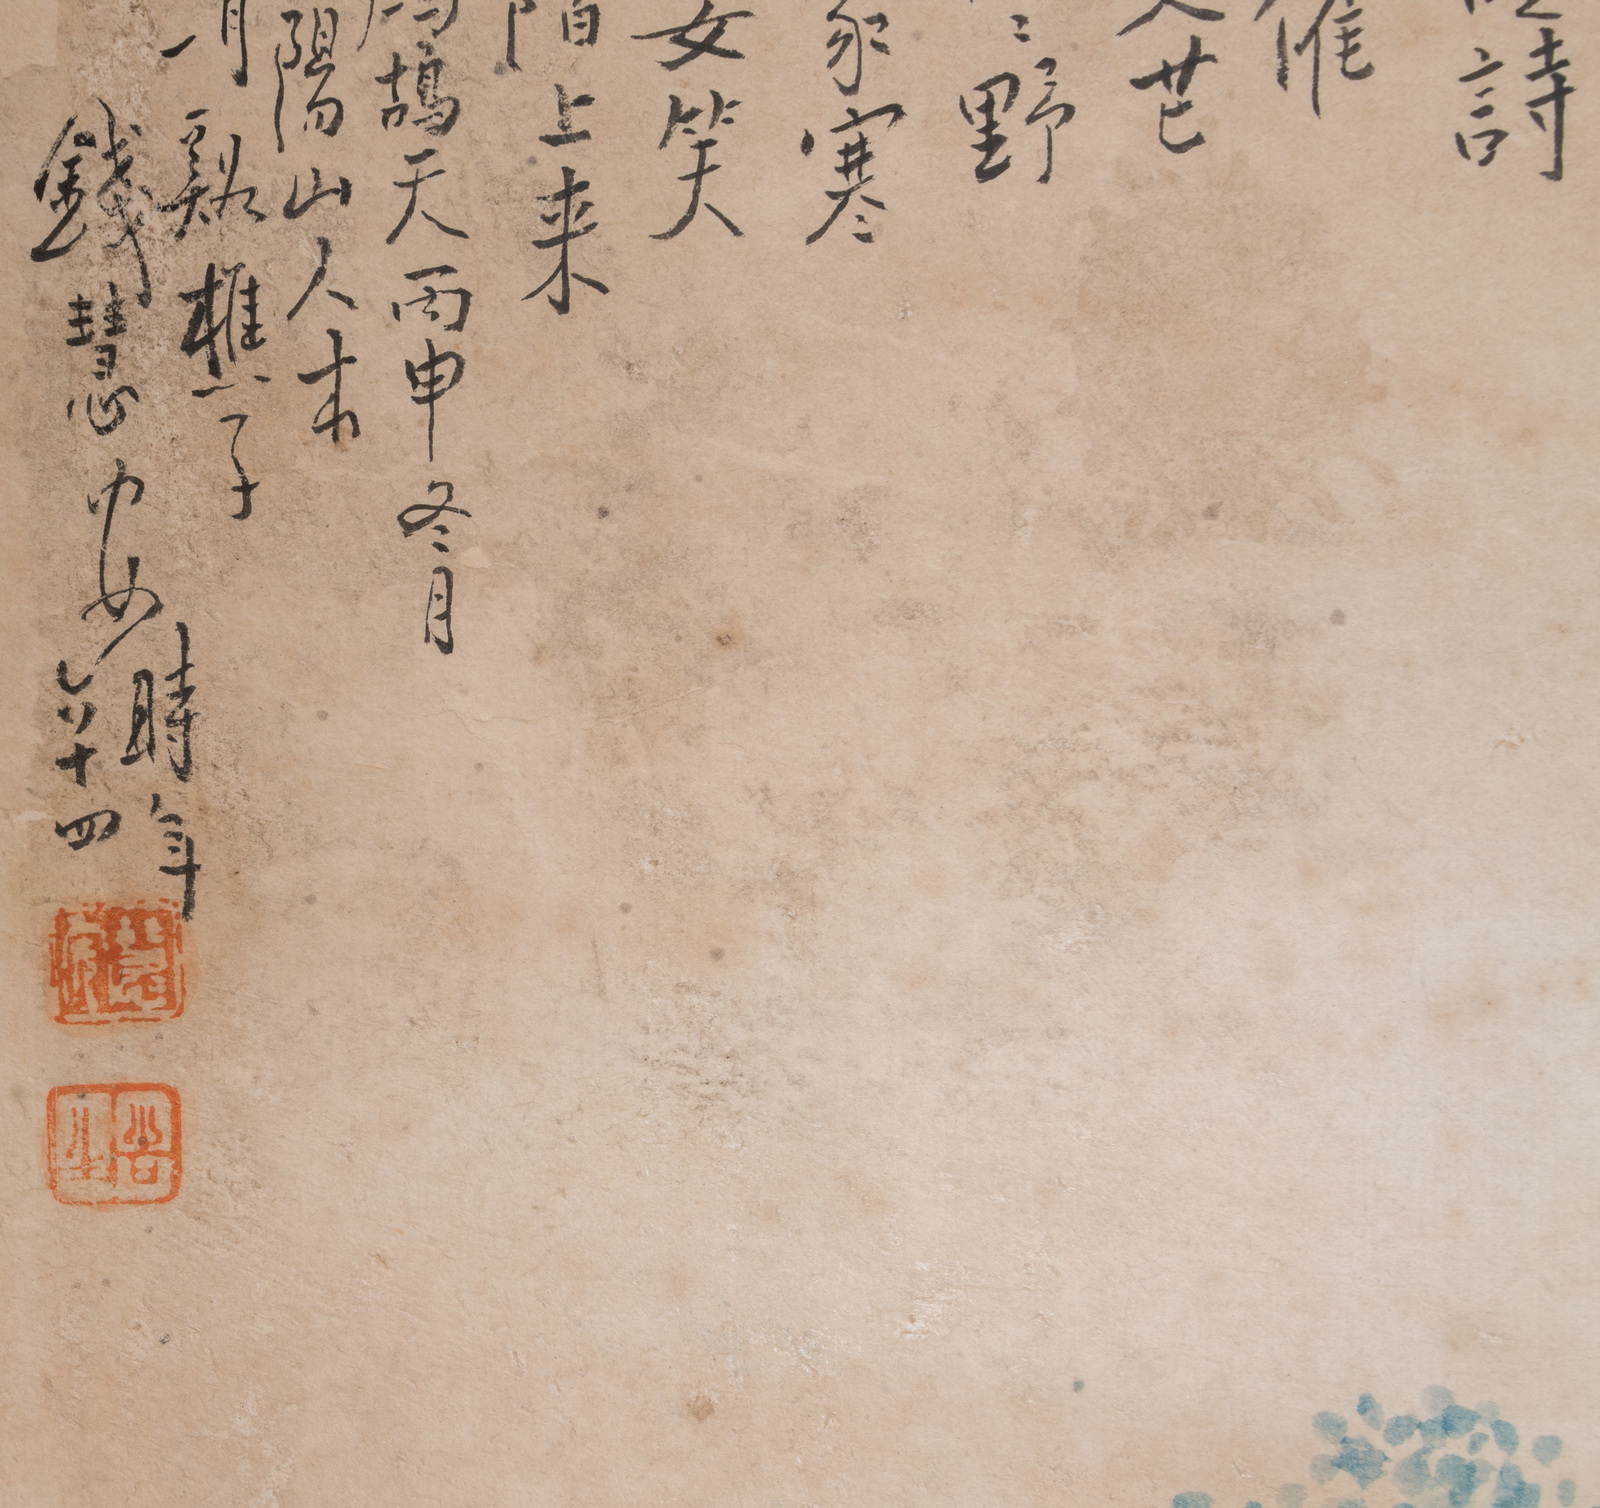 詩
惟
芒
野
家寒
女笑
陌上来
鴣天丙申冬月
陽山人本
谿樵子
錢慧安時年六十四